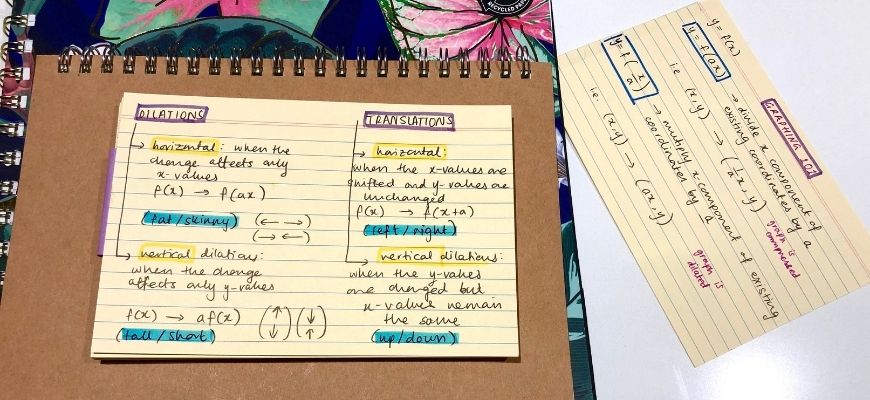 RECYCLED PAPER
DILATIONS
→ horizontal: when the
change affects only
x-values
f(x) → f(ax)
(fat/skinny) (← →)
(→ ←)
→ vertical dilations:
when the change
affects only y-values
f(x) → af(x) (↑↓) (↓↑)
(tall/short)
TRANSLATIONS
→ horizontal:
when the x-values are
shifted and y-values are
unchanged
f(x) → f(x+a)
(left/right)
→ vertical dilations:
when the y-values
are changed but
x-values remain
the same
(up/down)
GRAPHING 101
y = f(x)
y = f(ax) → divide x component of
existing coordinates by a
i.e (x, y) → (1/a x, y) graph is
compressed
y = f(x/a) → multiply x component of existing
coordinates by a
i.e. (x, y) → (ax, y) graph is
dilated